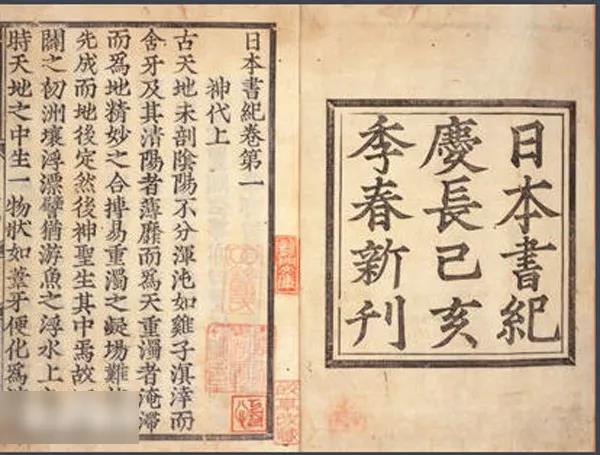 日本書紀
慶長己亥
季春新刊
日本書紀卷第一
神代上
古天地未剖陰陽不分渾沌如雞子溟涬而
含牙及其清陽者薄靡而爲天重濁者淹滯
而爲地精妙之合搏易重濁之凝場難
先成而地後定然後神聖生其中焉故
闢之初洲壤浮漂譬猶游魚之浮水上
時天地之中生一物狀如葦牙便化爲